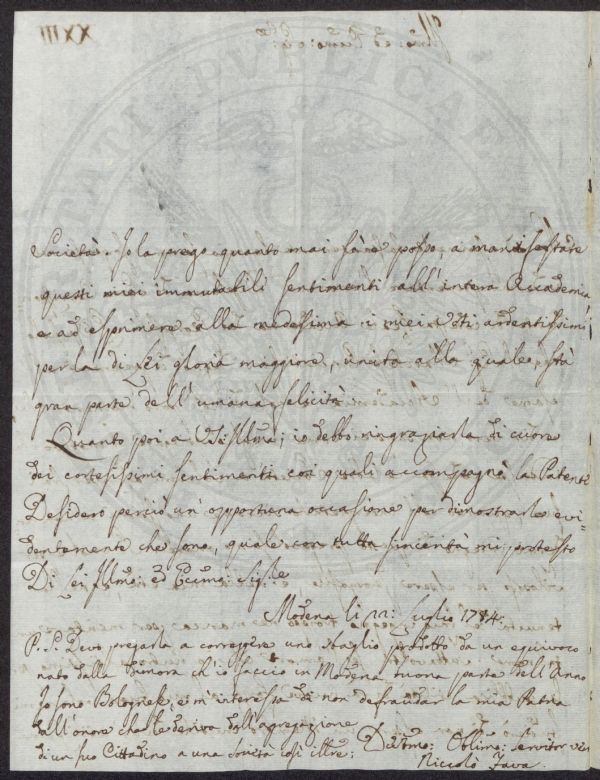 XXIII
Società. Io la prego quanto mai sò e posso, a manifestare
questi miei immutabili sentimenti all'intera Accademia,
e ad esprimere alla medesima i miei voti ardentissimi
per la di Lei gloria maggiore, unita alla quale stà
gran parte dell'umana felicità.
Quanto poi a VS: Illma; io debbo ringraziarla di cuore
dei cortesissimi sentimenti coi quali accompagnò la Patente
Desidero perciò un'opportuna occasione per dimostrarle evi-
dentemente che sono, quale con tutta sincerità mi protesto
Di Lei Illmo: ed Eccmo: Sig:e
Modena li 22: Luglio 1784:
P.S. Devo pregarla a correggere uno sbaglio prodotto da un equivoco
nato dalla dimora ch'io faccio in Modena buona parte dell'Anno
Io sono Bolognese, e m'interessa di non defraudar la mia Patria
dall'onore che le deriva dall'agregazione
di un suo Cittadino a una Società così illtre:
Divtmo: Obblmo: Servitor vero
Niccolò Fava
SOCIETATI PUBLICAE